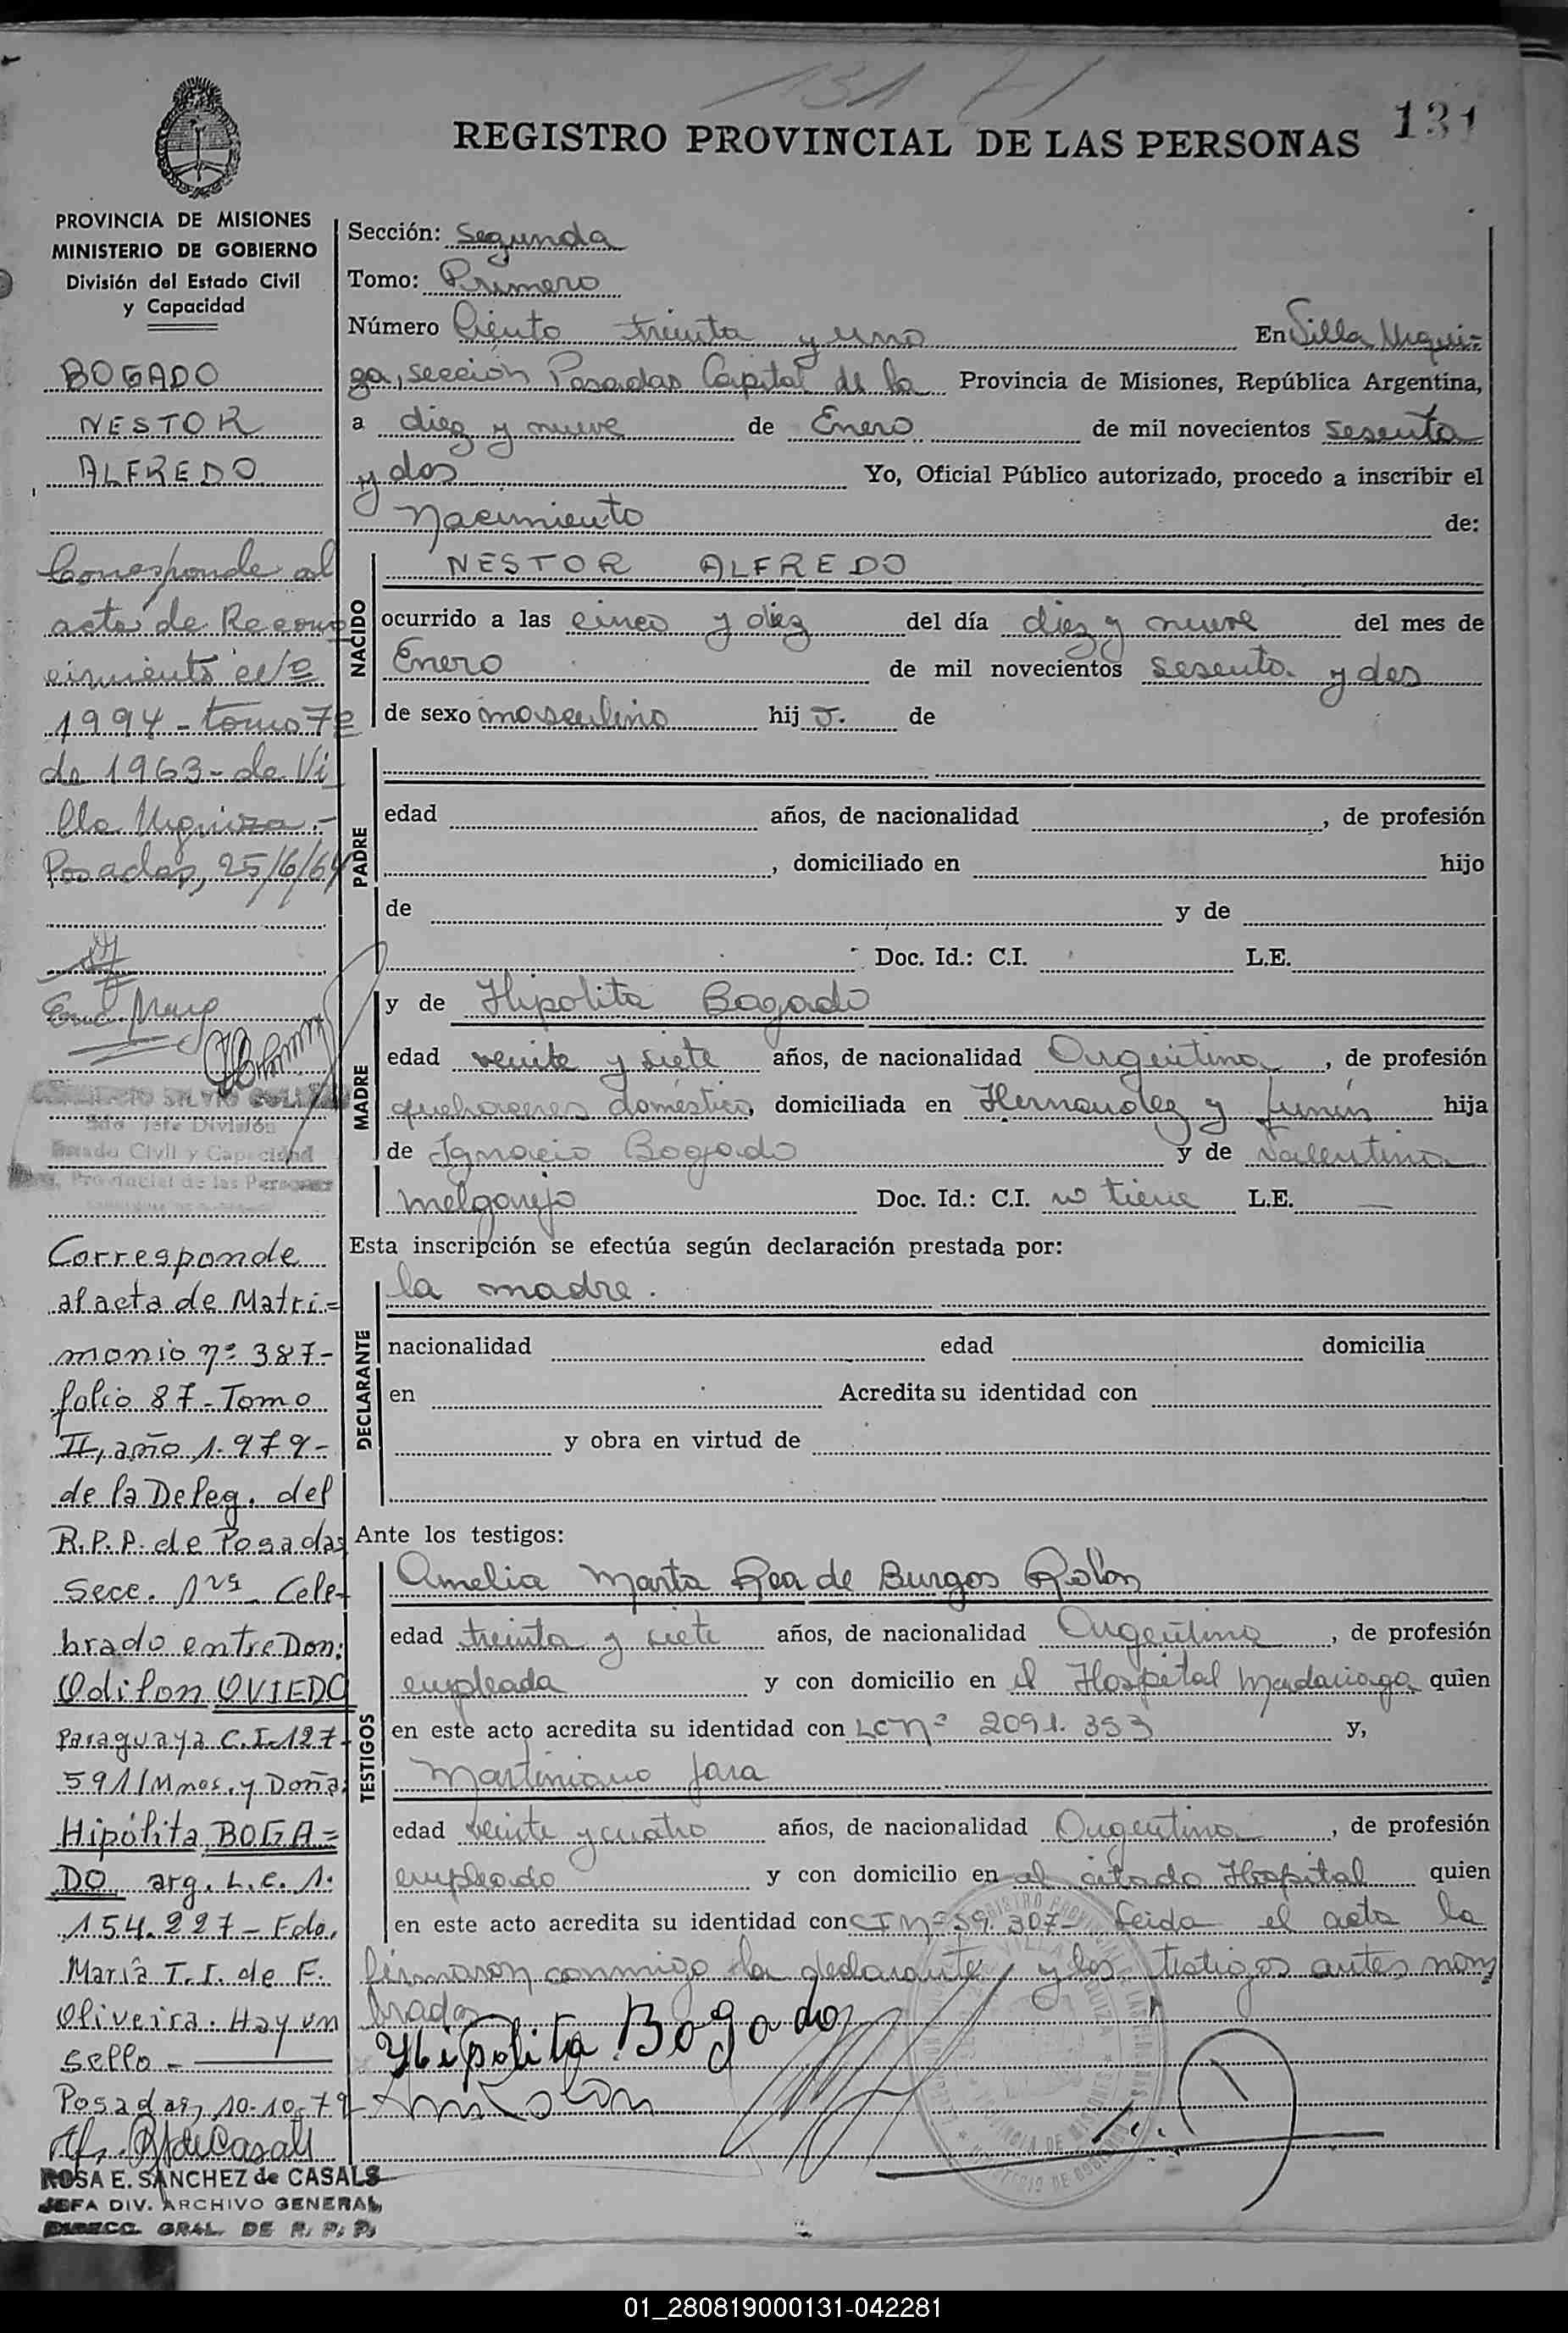 131
REGISTRO PROVINCIAL DE LAS PERSONAS 131
PROVINCIA DE MISIONES
MINISTERIO DE GOBIERNO
División del Estado Civil
y Capacidad
BOGADO
NESTOR
ALFREDO
Corresponde al
acta de Recono
cimiento nº
1994 - tomo 7º
de 1963 - de Vi
lla Urquiza.-
Posadas, 25/6/64
Sdo Jefe División
Estado Civil y Capacidad
Provincial de las Personas
Corresponde
al acta de Matri=
monio nº 387-
folio 87 - Tomo
II, año 1.979-
de la Deleg. del
R.P.P. de Posadas
Secc. 1ra - Cele-
brado entre Don:
Odilon OVIEDO
Paraguaya C.I. 127-
591/Mnes. y Doña:
Hipólita BOGA=
DO arg. L.C. 1.
154.227 - Fdo.
María T. I. de F.
Oliveira. Hay un
sello -
Posadas, 10-10-79
ROSA E. SANCHEZ de CASALS
JEFA DIV. ARCHIVO GENERAL
DIRECC. GRAL. DE R. P. P.
Sección: Segunda
Tomo: Primero
Número Ciento treinta y uno En Villa Urqui=
za, sección Posadas Capital de la Provincia de Misiones, República Argentina,
a diez y nueve de Enero de mil novecientos sesenta
y dos Yo, Oficial Público autorizado, procedo a inscribir el
Nacimiento de:
NACIDO
NESTOR ALFREDO
ocurrido a las cinco y diez del día diez y nueve del mes de
Enero de mil novecientos sesenta y dos
de sexo masculino hij o. de
PADRE
edad años, de nacionalidad , de profesión
, domiciliado en hijo
de y de
Doc. Id.: C.I. L.E.
MADRE
y de Hipolita Bogado
edad veinte y siete años, de nacionalidad Argentina, de profesión
quehaceres domésticos, domiciliada en Hernandez y Junín hija
de Ignacio Bogado y de Valentina
Melgarejo Doc. Id.: C.I. no tiene L.E. —
Esta inscripción se efectúa según declaración prestada por:
DECLARANTE
la madre.
nacionalidad edad domicilia
en Acredita su identidad con
y obra en virtud de
Ante los testigos:
TESTIGOS
Amelia Marta Rea de Burgos Rolón
edad treinta y siete años, de nacionalidad Argentina, de profesión
empleada y con domicilio en el Hospital Madariaga quien
en este acto acredita su identidad con LC Nº 2091.353 y,
Martiniano Jara
edad veinte y cuatro años, de nacionalidad Argentina, de profesión
empleado y con domicilio en al citado Hospital quien
en este acto acredita su identidad con CI Nº 59.307- Leida el acta la
firmaron conmigo la declarante y los testigos antes nom
brados
Hipolita Bogado
01_280819000131-042281